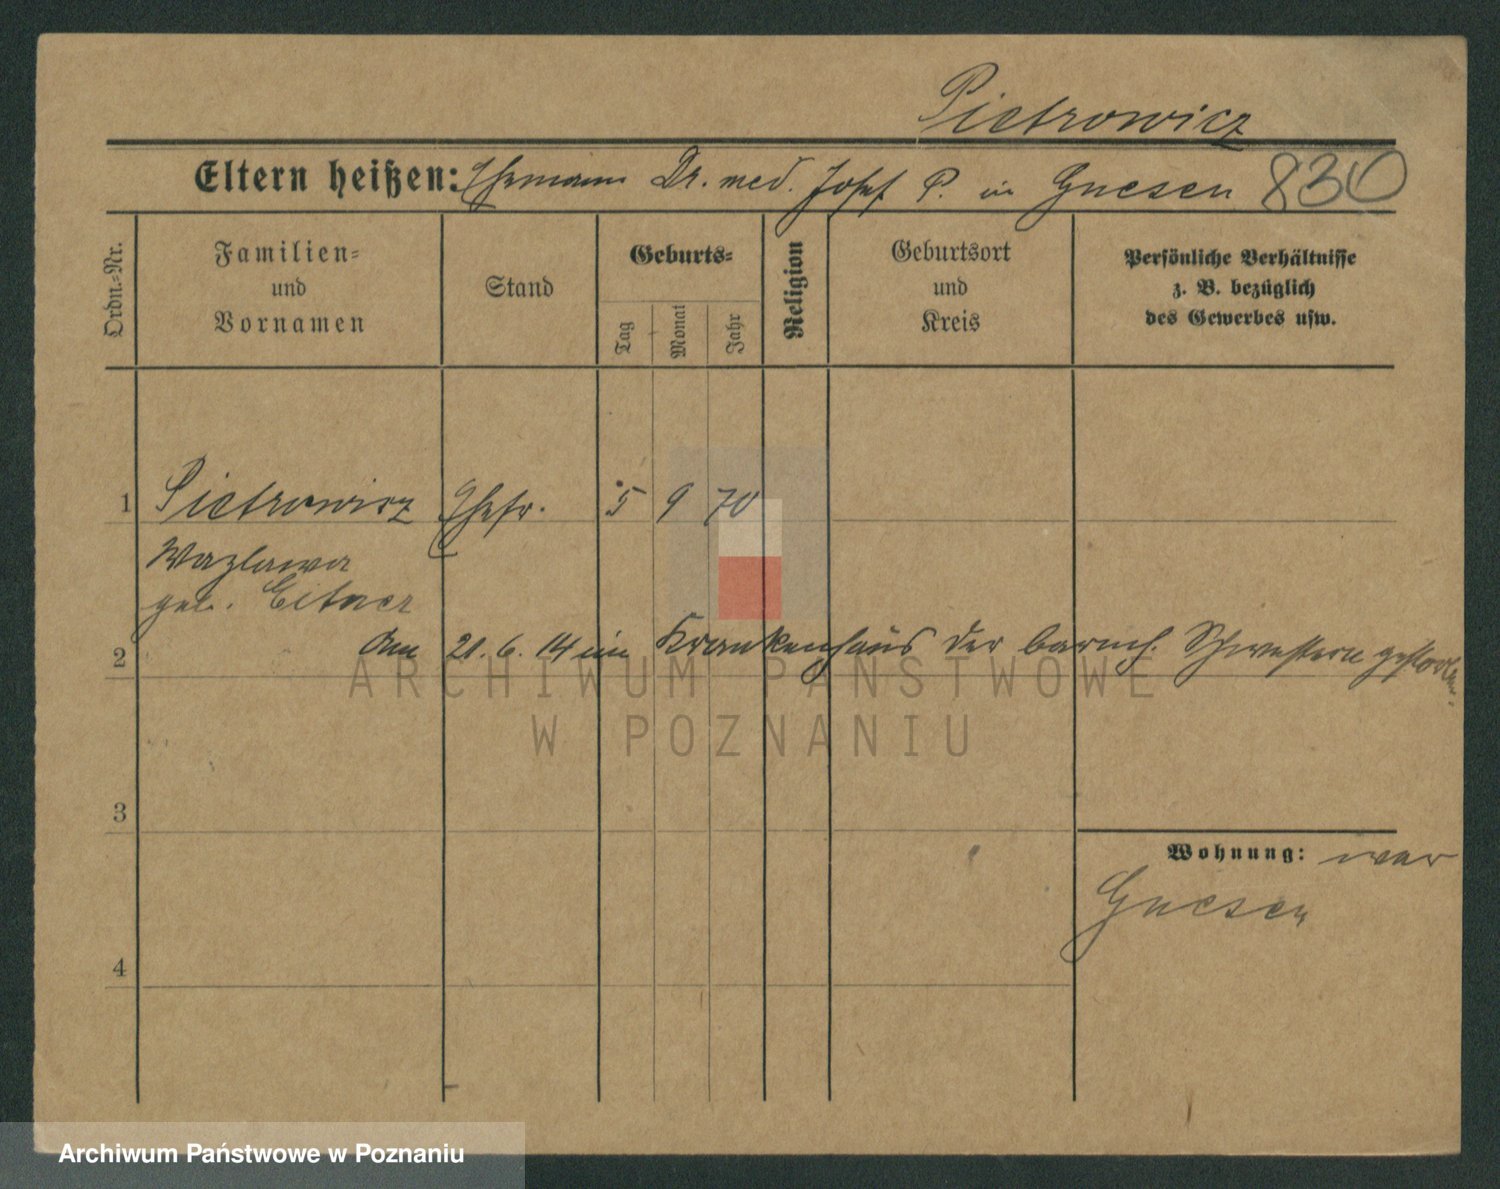 Pietrowicz
Eltern heißen: Ehemann Dr. med. Josef P. in Gnesen 830
Ordn.-Nr.
Familien-
und
Vornamen
Stand
Geburts-
Tag
Monat
Jahr
Religion
Geburtsort
und
Kreis
Persönliche Verhältnisse
z. B. bezüglich
des Gewerbes usw.
1 Pietrowicz Ehefr. 5 9 70
Wazlawa
geb. Eitner
2 Am 21. 6. 14 im Krankenhaus der barmh. Schwestern gestorben.
ARCHIWUM PAŃSTWOWE
W POZNANIU
3
Wohnung: war
Gnesen
4
Archiwum Państwowe w Poznaniu